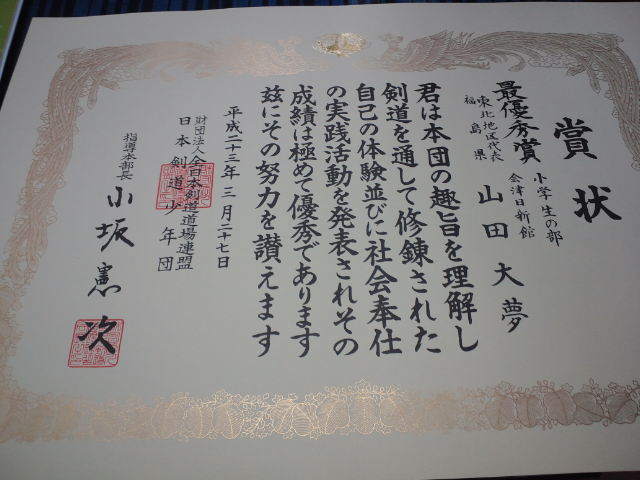 賞状
最優秀賞 小学生の部
東北地区代表 会津日新館
福島県 山田大夢
君は本団の趣旨を理解し
剣道を通して修錬された
自己の体験並びに社会奉仕
の実践活動を発表されその
成績は極めて優秀であります
玆にその努力を讃えます
平成二十三年三月二十七日
財団法人全日本剣道道場連盟
日本剣道少年団
指導本部長 小坂憲次